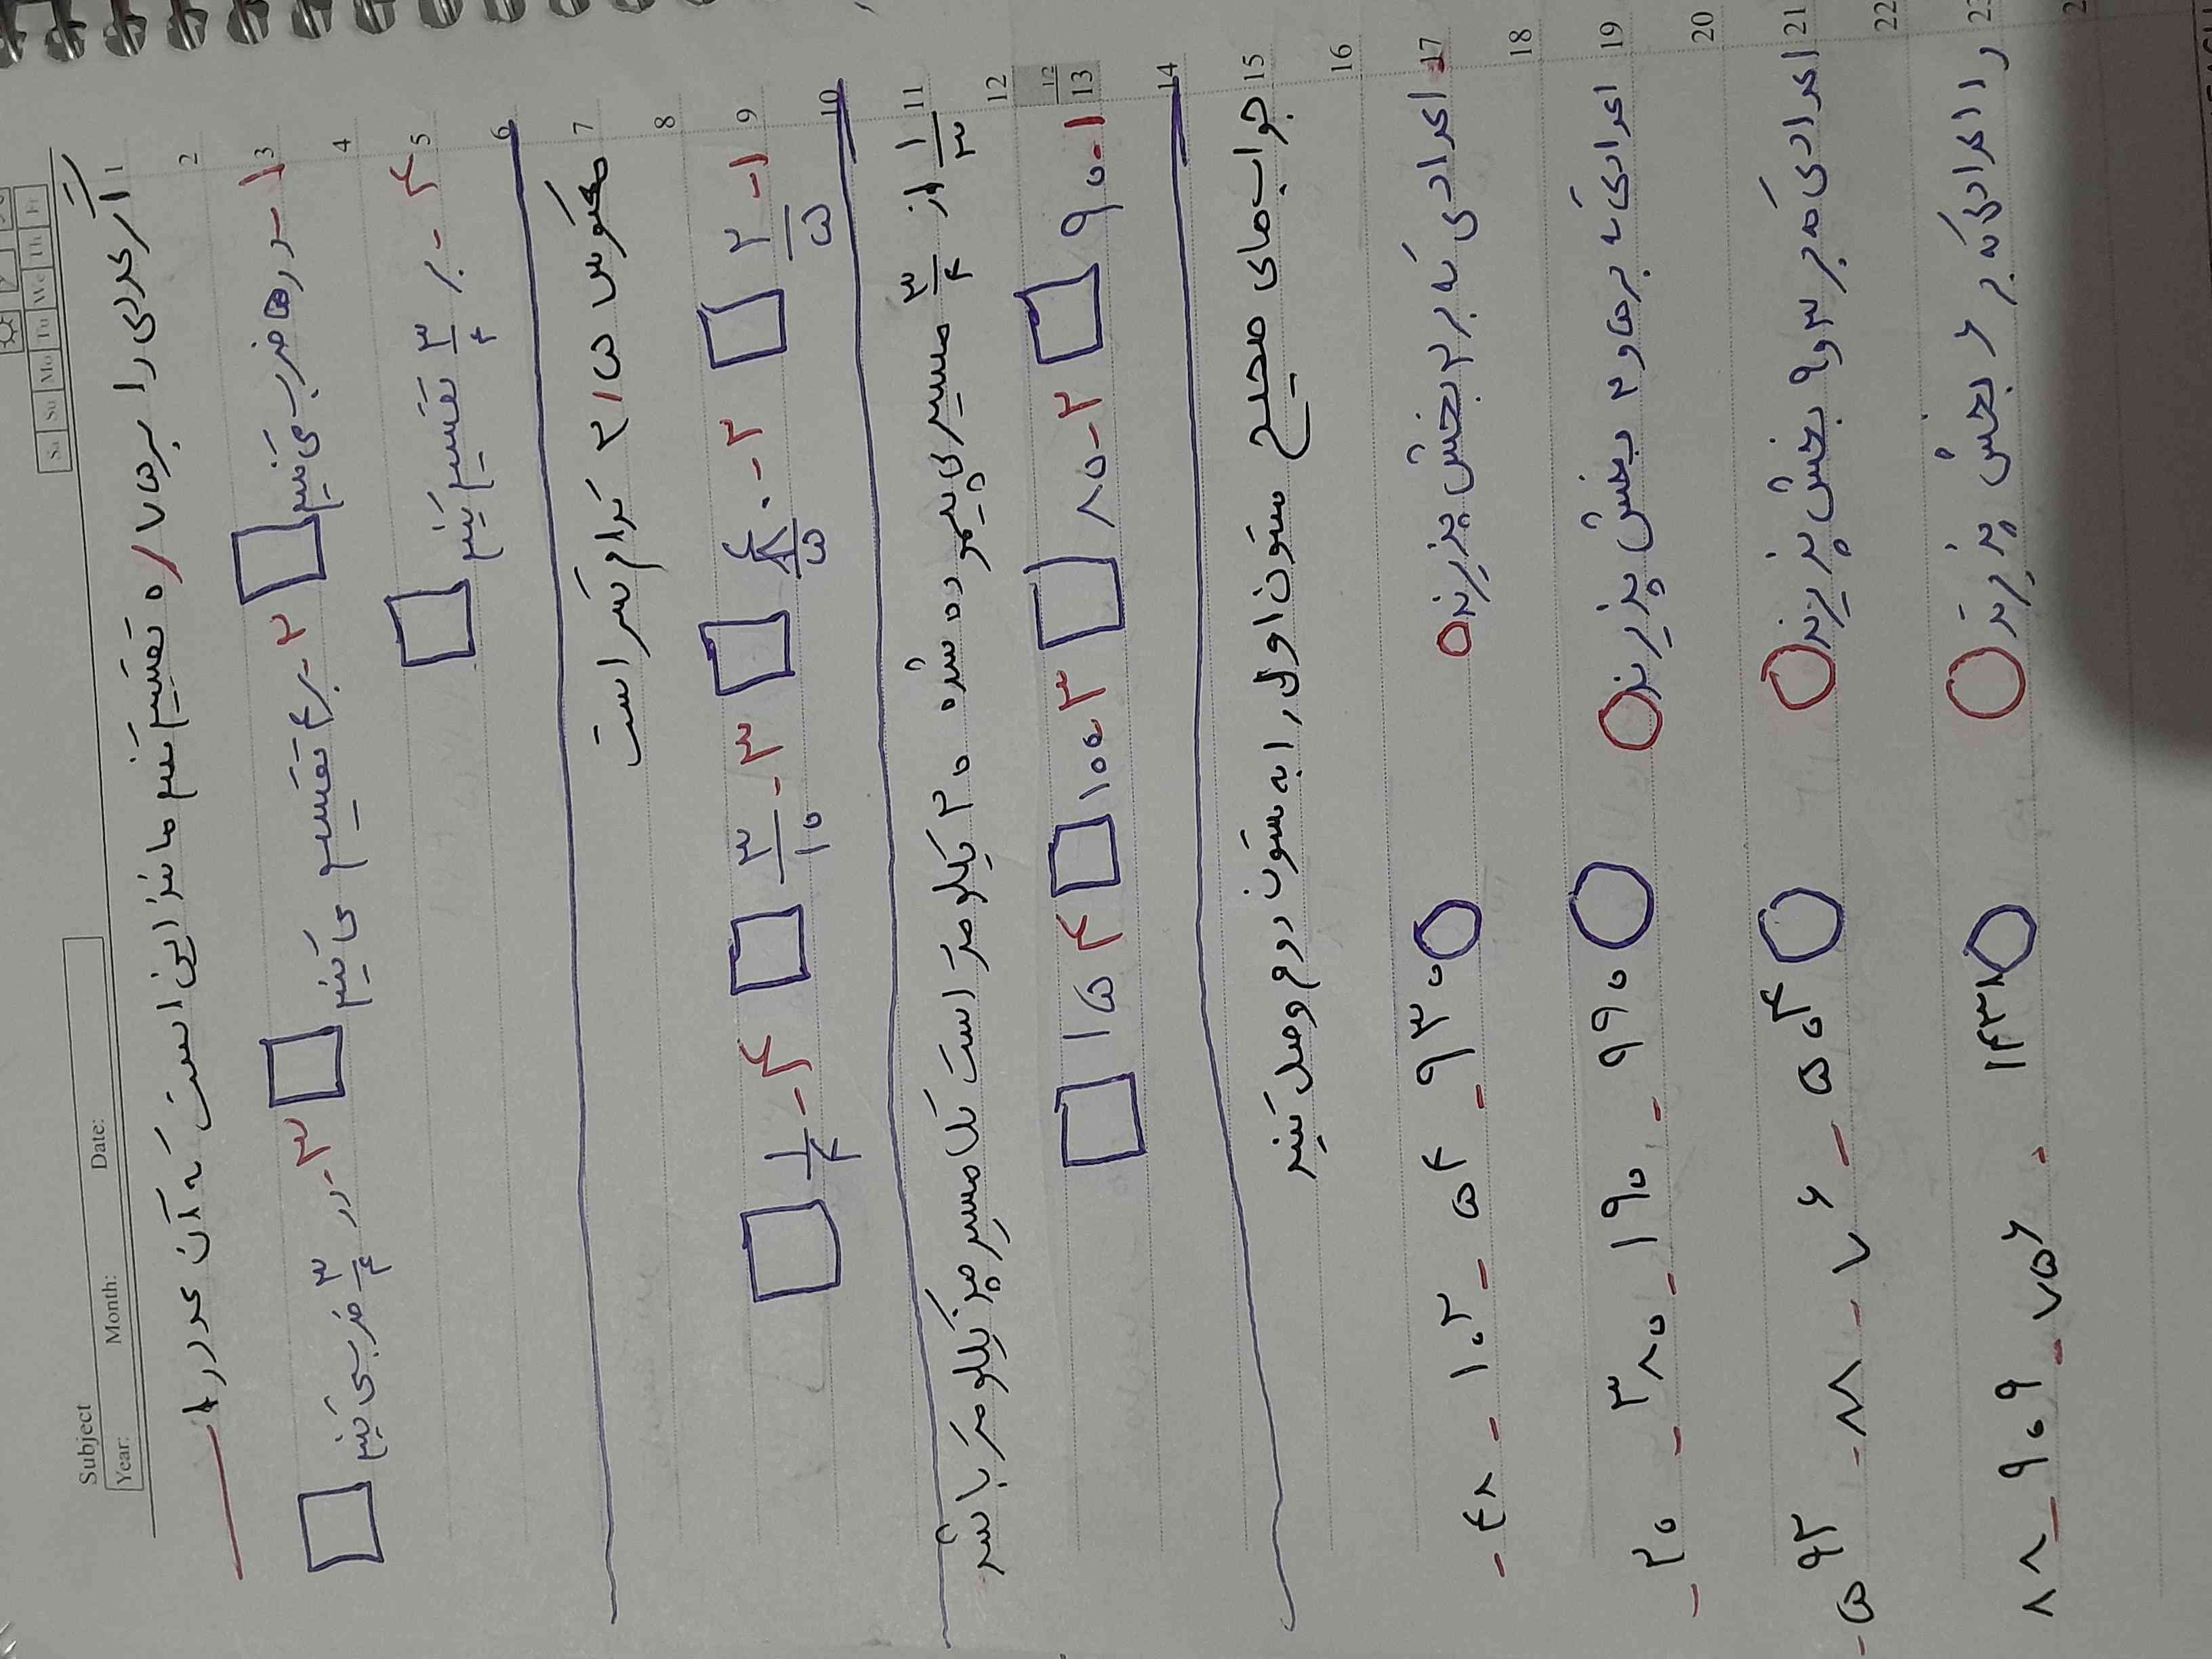 Subject
Year: Month: Date:
Sa Su Mo Tu We Th Fr
اگر عددی را بر ۰/۷۵ تقسیم کنیم مانند این است که آن عدد را
۱- در ۷۵ ضرب می کنیم ۲- بر ۴ تقسیم می کنیم ۳- در ۳/۴ ضرب می کنیم
۴- بر ۳/۴ تقسیم کنیم
معکوس ۲/۵ کدام کسر است
۱- ۲/۵ ۲- ۴/۵ ۳- ۳/۱۰ ۴- ۱/۴
۱/۳ از ۳/۴ مسیری پیموده شده ۲۰ کیلومتر است کل مسیر چند کیلومتر باشد
۱- ۹۰ ۲- ۸۰ ۳- ۱۰۰ ۴ ۱۵
جواب های صحیح ستون اول را به ستون دوم وصل کنید
اعدادی که بر ۲ بخش پذیرند ۹۳۰ - ۵۴ - ۱۰۲ - ۴۸ -
اعدادی که بر ۵ و ۲ بخش پذیرند ۹۹۰ - ۱۹۰ - ۳۸۰ - ۲۰ -
اعدادی که بر ۳ و ۹ بخش پذیرند ۵۰۴ - ۷۶ - ۸۸ - ۵۹۲ -
را اعدادی که بر ۶ بخش پذیرند ۱۴۳۸ - ۷۵۶ - ۹۰۹ - ۸۸
1
2
3
4
5
6
7
8
9
10
11
12
12
13
14
15
16
17
18
19
20
21
22